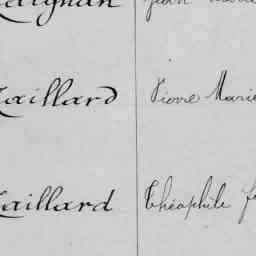 aignan Jean Marie
aillard Pierre Marie
aillard Théophile